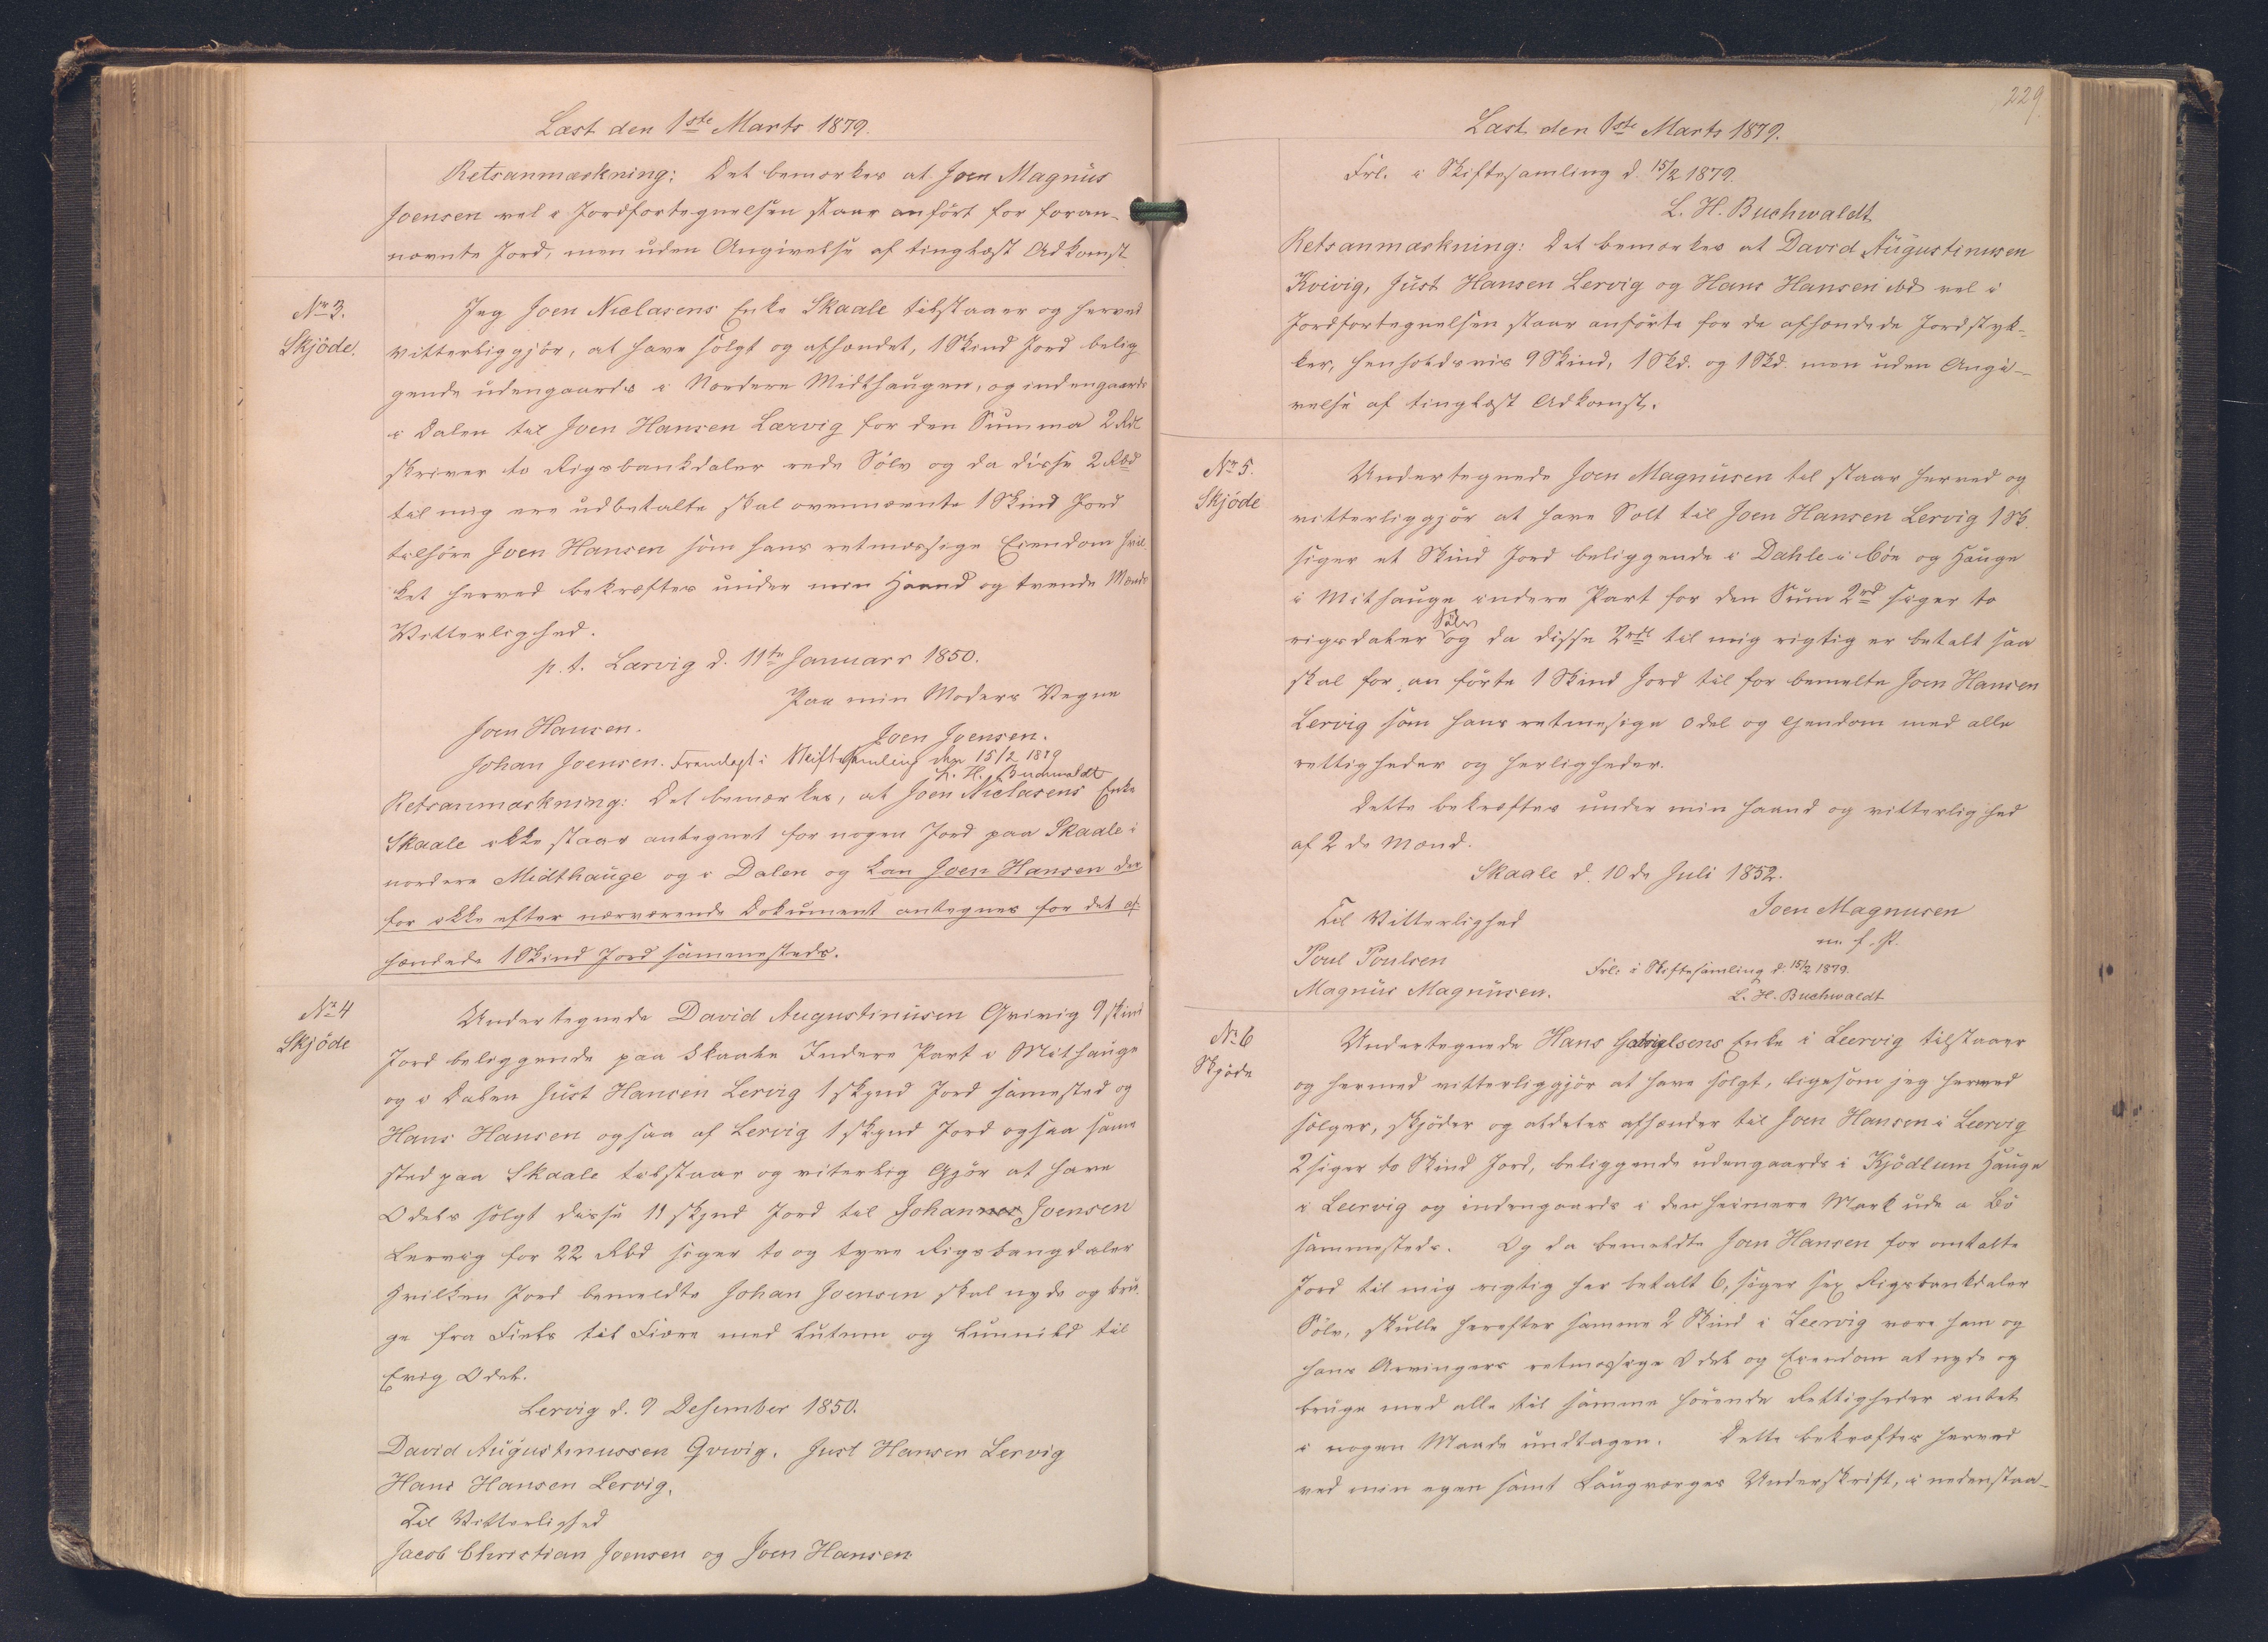 Læst den 1ste Marts 1879.
Retsanmærkning: Det bemærkes at Joen Magnus
Joensen vel i Jordfortegnelsen staar anført for foran-
nævnte Jord, men uden Angivelse af tinglæst Adkomst
No 3.
Skjøde.
Jeg Joen Niclasens Enke Skaale tilstaaer og herved
vitterliggjør, at have solgt og afhændet, 1 Skind Jord belig
gende udengaards i Nordere Midthaugen, og indengaards
i Dalen til Joen Hansen Lærvig for den Summa 2 Rdl
skriver to Rigsbankdaler rede Sølv og da disse 2 Rbd
til mig ere udbetalte skal ovennævnte 1 Skind Jord
tilhøre Joen Hansen som hans retmæssige Eiendom hvil
ket herved bekræftes under min Haand og trende Mænds
Vitterlighed.
p.t. Lærvig d. 11te Januarr 1850.
Paa min Moders Vegne
Joen Hansen.
Joen Joensen.
Johan Joensen. Fremlagt i Skiftesamling den 15/2 1879
L. H. Buchwaldt
Retsanmærkning: Det bemærkes, at Joen Niclasens Enke
Skaale ikke staar antegnet for nogen Jord paa Skaale i
nordere Midthauge og i Dalen og kan Joen Hansen der
for ikke efter nærværende Dokument antegnes for det af
hændede 1 Skind Jord sammesteds.
No 4
Skjøde
Undertegnede David Augustinusen Qvivig 9 skind
Jord beliggende paa Skaale Indere Part i Mithauge
og i Dalen Just Hansen Lervig 1 skynd Jord samested og
Hans Hansen ogsaa af Lervig 1 skynd Jord ogsaa same
sted paa Skaale tilstaar og viterlig Gjør at have
Odels solgt disse 11 skynd Jord til Johannes Joensen
Lervig for 22 Rbd siger to og tyve Rigsbangdaler
hvilken Jord bemeldte Johan Joensen skal nyde og bru
ge fra Fiels til Fiære med Lutum og Lunnild til
Evig Odel.
Lervig d. 9 Desember 1850.
David Augustinussen Qvivig. Just Hansen Lervig
Hans Hansen Lervig.
Til Vitterlighed
Jacob Christian Joensen og Joen Hansen
229
Læst den 1ste Marts 1879.
Frl. i Skiftesamling d. 15/2 1879.
L. H. Buchwaldt
Retsanmærkning: Det bemærkes at David Augustinusen
Kvivig, Just Hansen Lervig og Hans Hansen ibd vel i
Jordfortegnelsen staar anførte for de afhændede Jordstyk-
ker, henholdsvis 9 Skind, 1 Skd. og 1 Skd. men uden Angi-
velse af tinglæst Adkomst.
No 5.
Skjøde
Undertegnede Joen Magnusen til staar herved og
vitterliggjør at have Solt til Joen Hansen Lervig 1 Sk.
siger et Skind Jord beliggende i Dahle i bøe og Hauge
i Mithauge indere Part for den Sum 2rd siger to
rigsdaler Sølv og da disse 2rdl til mig rigtig er betalt saa
skal for an førte 1 Skind Jord til for bemelte Joen Hansen
Lervig som hans retmesige odel og ejendom med alle
rettigheder og herligheder.
Dette bekræftes under min haand og vitterlighed
af 2de Mænd.
Skaale d. 10de Juli 1852.
Til Vitterlighed
Joen Magnusen
m. f. P.
Poul Poulsen
Magnus Magnusen.
Frl. i Skiftesamling d. 15/2 1879.
L. H. Buchwaldt
No 6
Skjøde
Undertegnede Hans Gabrielsens Enke i Leervig tilstaaer
og hermed vitterliggjør at have solgt, ligesom jeg herved
sælger, skjøder og aldeles afhænder til Joen Hansen i Leervig
2 siger to Skind Jord, beliggende udengaards i Kjødlum Hauge
i Leervig og indengaards i den heimere Mark ude a Bø
sammesteds. Og da bemeldte Joen Hansen for omtalte
Jord til mig rigtig har betalt 6, siger sex Rigsbankdaler
Sølv, skulle herefter samme 2 Skind i Leervig være ham og
hans Arvingers retmæssige Odel og Eiendom at nyde og
bruge med alle til samme hørende Rettigheder intet
i nogen Maade undtagen. Dette bekræftes herved
ved min egen samt Laugværges Underskrift, i nedenstaa-